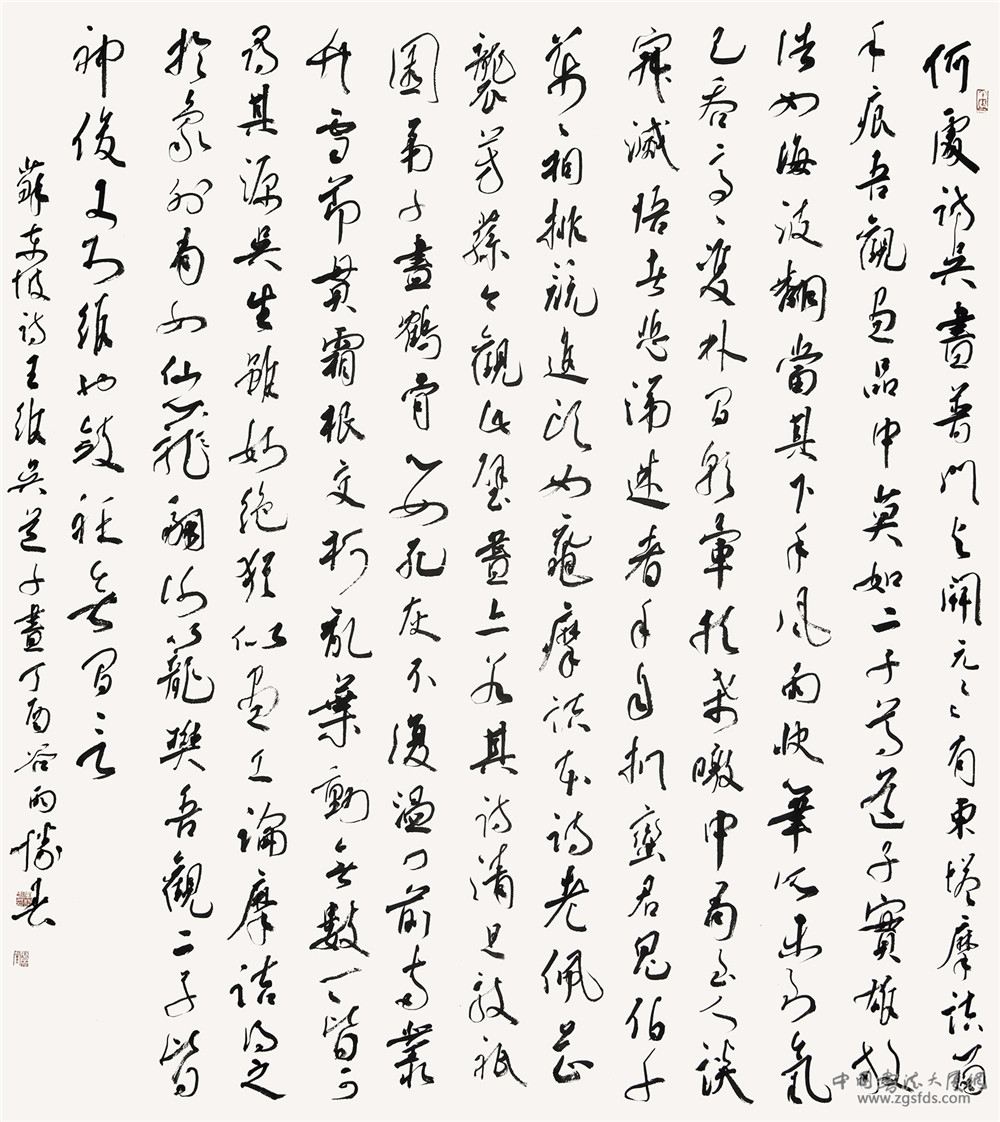 何處訪吳畫普門与開元〻有東塔摩詰留
手痕吾觀画品中莫如二子尊道子實雄放
浩如海波翻當其下手風雨快筆所未到氣
已吞亭〻雙林間彩暈扶桑暾中有至人談
寂滅悟者悲涕迷者手自捫蠻君鬼伯千
萬〻相排競進頭如黿摩詰本詩老佩芷
襲芳蓀今觀此壁畫亦若其詩清且敦祇
園弟子盡鶴骨心如死灰不復溫門前兩叢
竹雪節貫霜根交柯亂葉動無數一〻皆可
尋其源吳生雖妙絕猶以画工論摩詰得之
於象外有如仙籠翮謝籠樊吾觀二子皆
神俊又於維也斂衽無間言
蘇東坡詩王維吳道子畫丁酉谷雨勝春
www.zgsfds.com